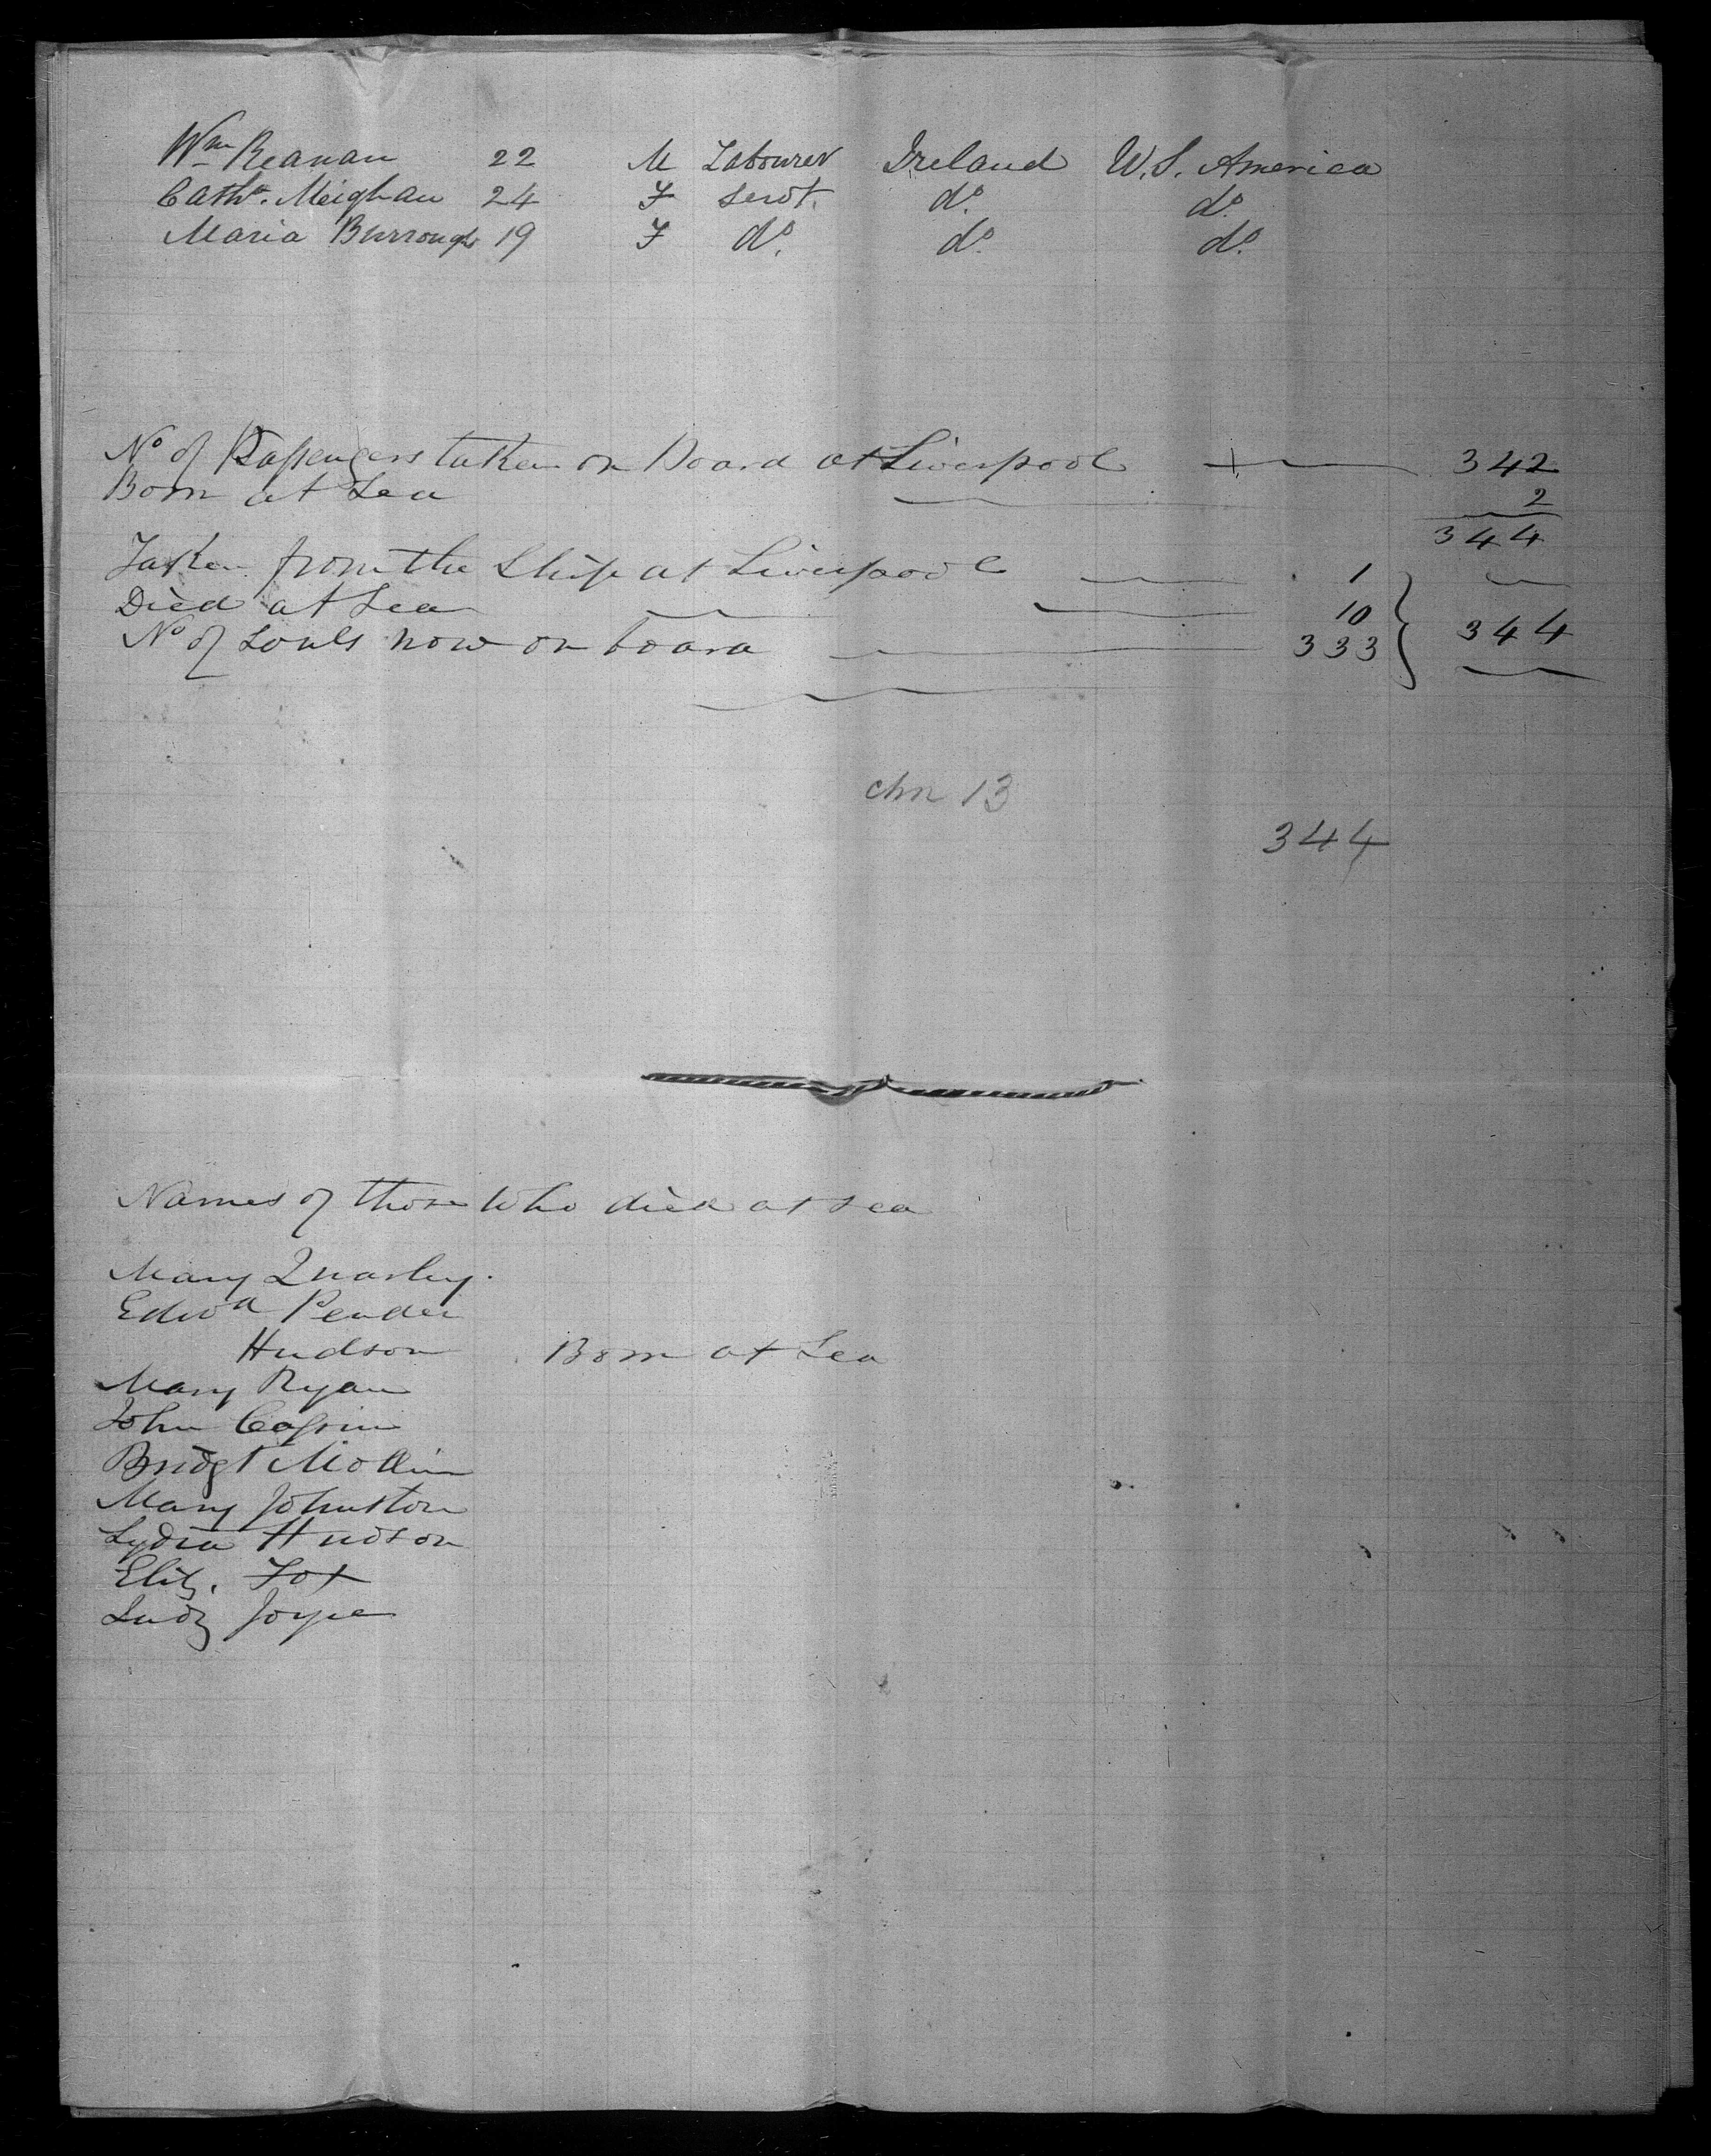 Wm Reanan 22 M Labourer Ireland U.S. America
Cathe. Meighan 24 F Servt. do. do.
Maria Burroughs 19 F do. do. do.
No of Passengers taken on Board at Liverpool 342
Born at Sea 2
344
Taken from the Ship at Liverpool 1
Died at Sea 10
No of Souls now on board 333 } 344
chn 13
344
Names of those who died at sea
Mary
Edwd Pender
Hudson Born at Sea
Mary Ryan
John
Bridgt
Mary Johnston
Lydia Hudson
Eliz. Fox
Judy Joyce